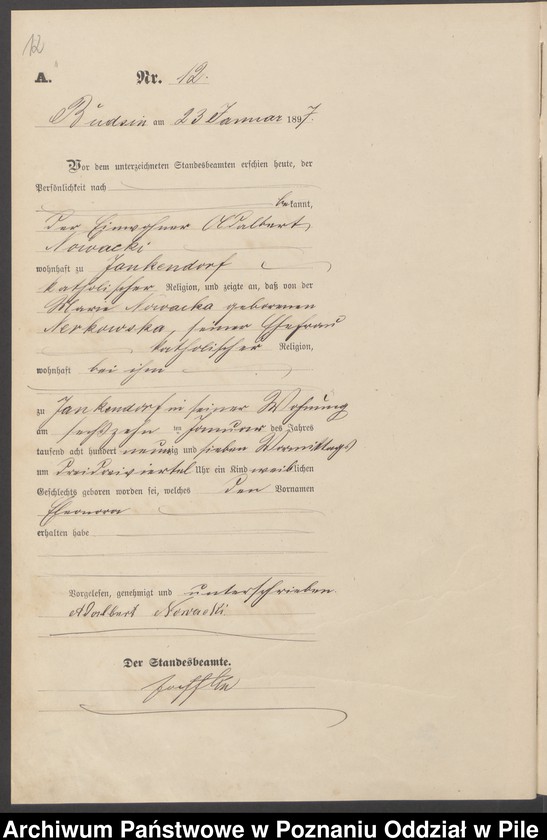 12
A. Nr. 12.
Budsin am 23 Januar 1897.
Vor dem unterzeichneten Standesbeamten erschien heute, der
Persönlichkeit nach
bekannt,
der Einwohner Adalbert
Nowacki
wohnhaft zu Jankendorf
katholischer Religion, und zeigte an, daß von der
Marie Nowacka geborenen
Nerkowska, seiner Ehefrau
katholischer Religion,
wohnhaft bei ihm
zu Jankendorf in seiner Wohnung
am sechszehn ten Januar des Jahres
tausend acht hundert neunzig und sieben Vormittags
um dreidreiviertel Uhr ein Kind weiblichen
Geschlechts geboren worden sei, welches den Vornamen
Eleonora
erhalten habe
Vorgelesen, genehmigt und unterschrieben
Adalbert Nowacki
Der Standesbeamte.
Archiwum Państwowe w Poznaniu Oddział w Pile